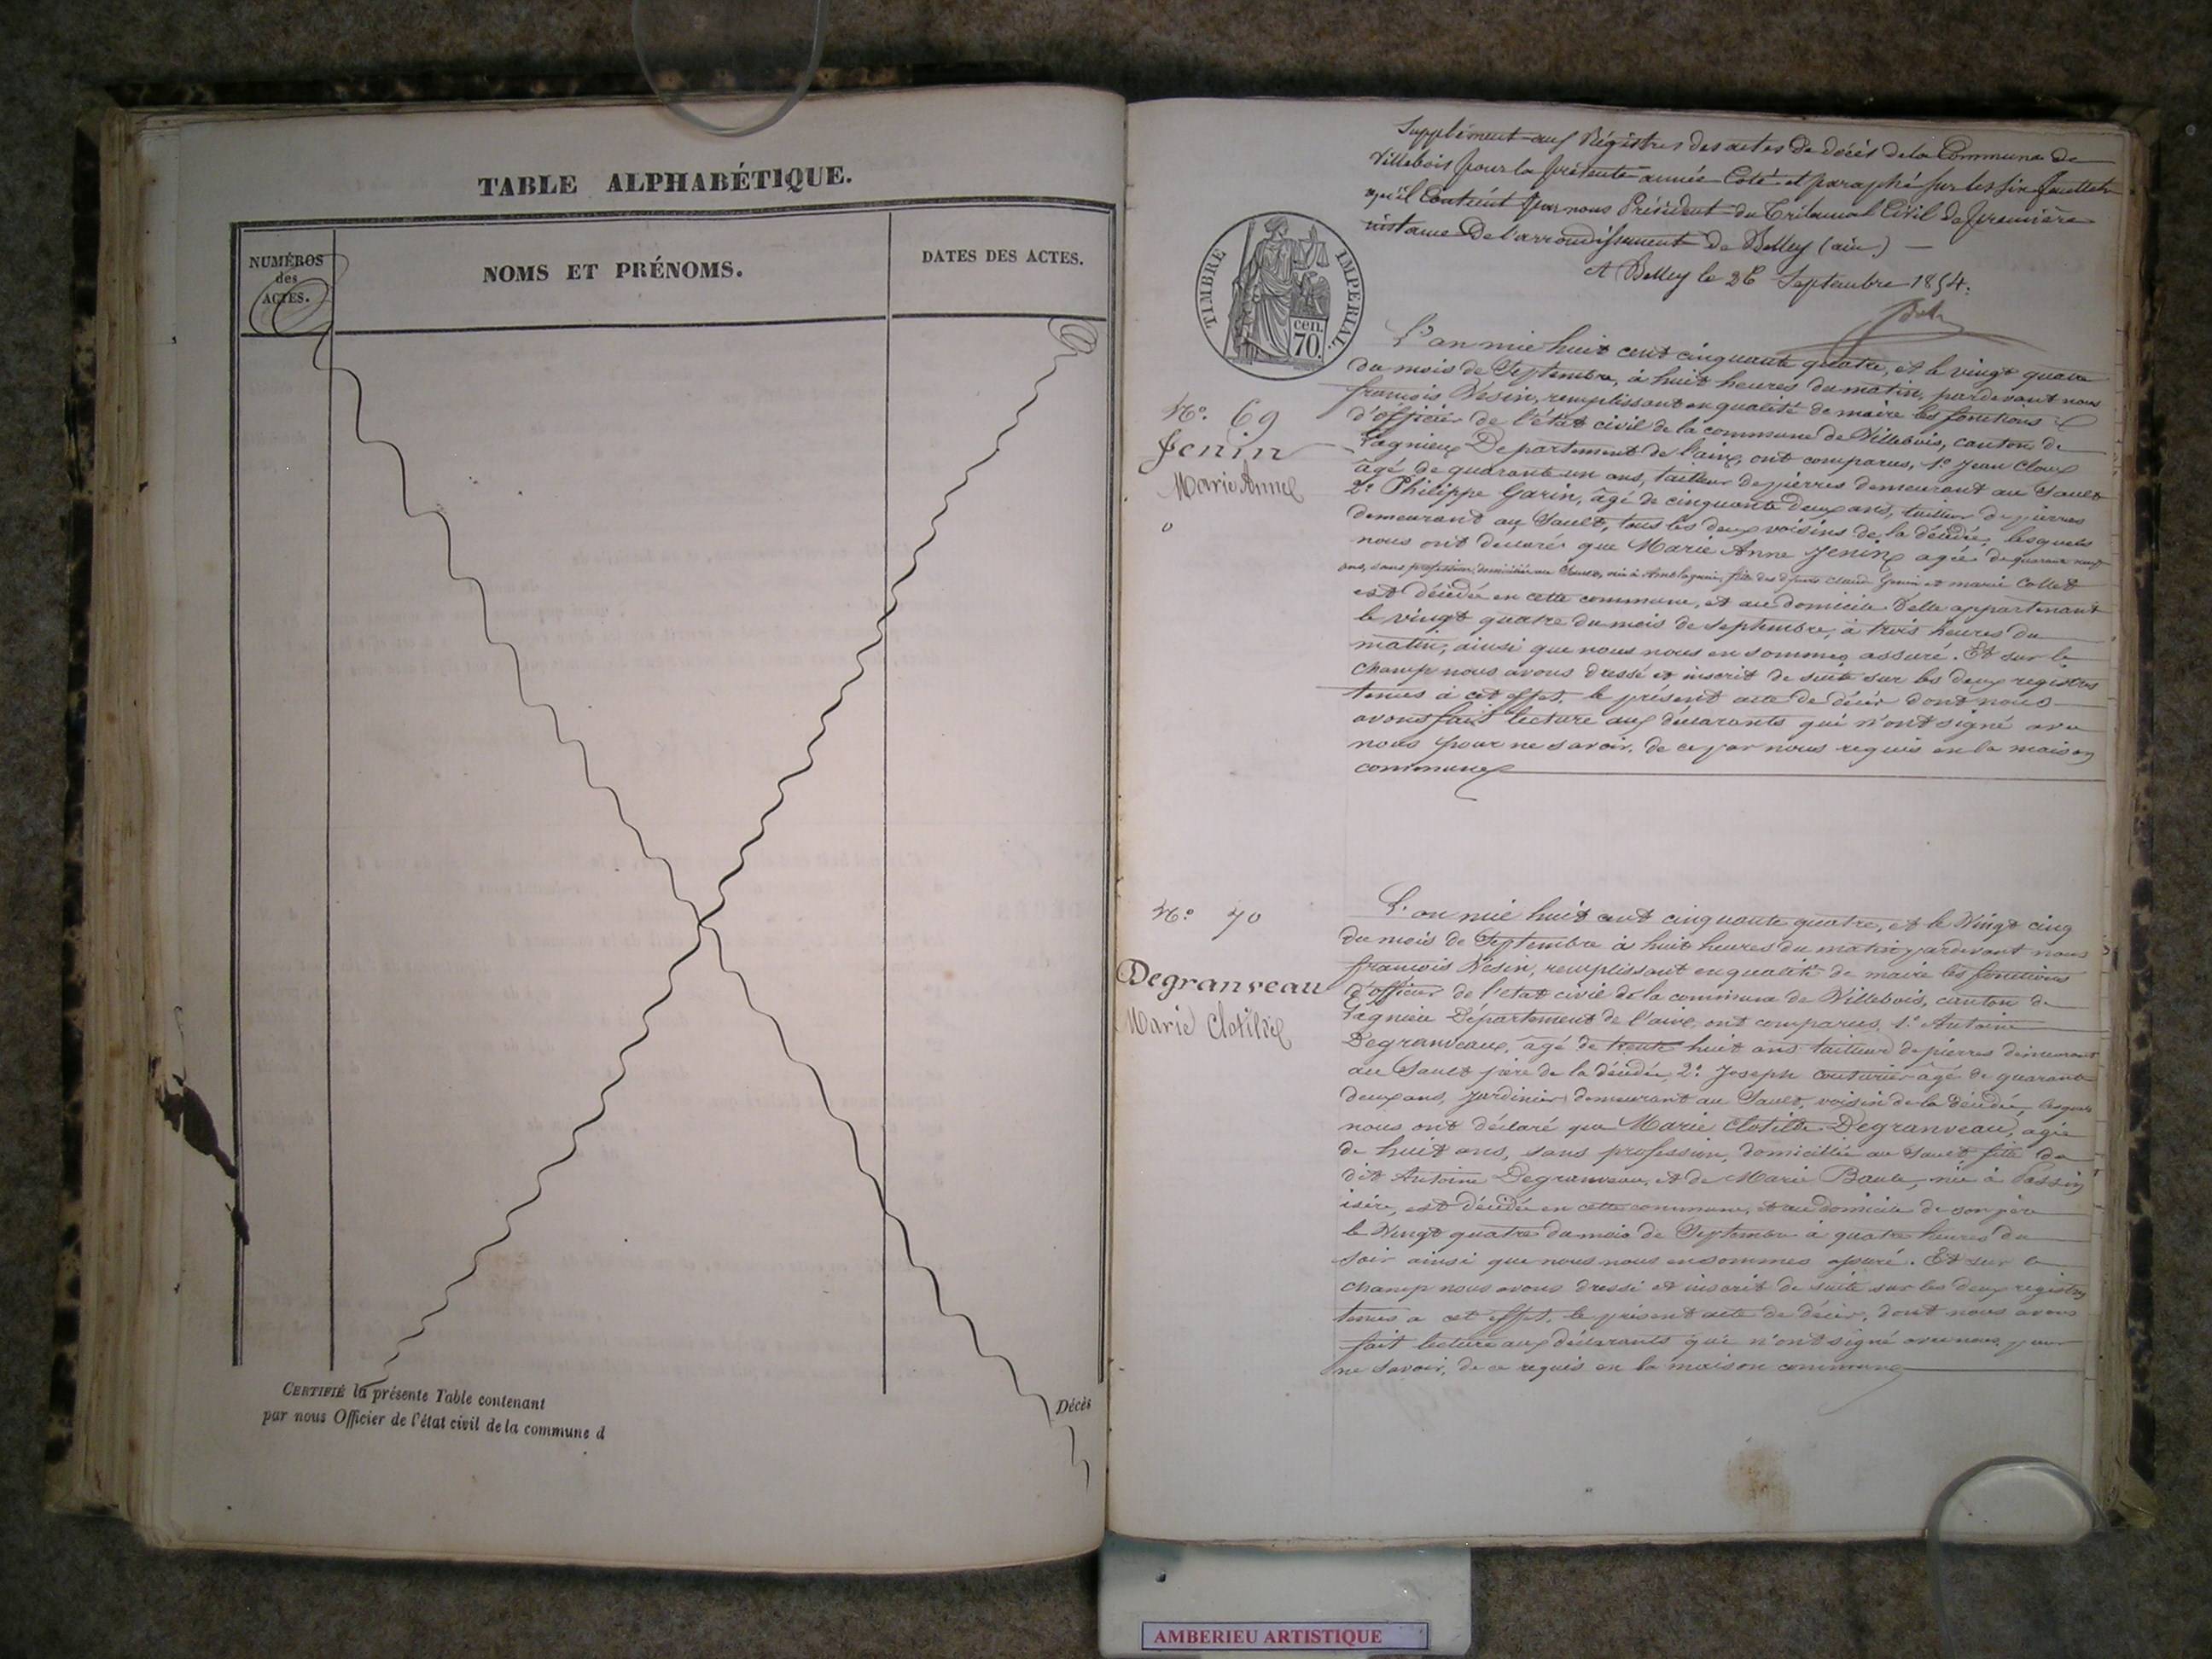 TABLE ALPHABÉTIQUE.
NUMÉROS
des
ACTES.
NOMS ET PRÉNOMS.
DATES DES ACTES.
CERTIFIÉ la présente Table contenant
Décès
par nous Officier de l'état civil de la commune d
Supplément aux Régistres des actes de décès de la Commune de
Villebois pour la présente année Coté et paraphé sur les six feuillets
qu'il Contient par nous Président du Tribunal Civil de première
instance de l'arrondissement de Belley (ain)
A Belley le 26 Septembre 1854.
TIMBRE IMPERIAL.
cen.
70.
N° 69
Jenin
Marie Anne
L'an mil huit cent cinquante quatre, et le vingt quatre
du mois de Septembre, à huit heures du matin, pardevant nous
françois Vesin, remplissant en qualité de maire les fonctions
d'officier de l'état civil de la commune de Villebois, canton de
Lagnieu Departement de l'ain, ont comparus, 1° Jean Cloux
âgé de quarante un ans, tailleur de pierres demeurant au Sault
2° Philippe Garin, âgé de cinquante deux ans, tailleur de pierres
demeurant au Sault, tous les deux voisins de la décédée, lesquels
nous ont déclaré que Marie Anne Jenin agée de quarante neuf
ans, sans profession, domiciliée au Sault, née à Amblagnieu, fille des défunts Claude Genin et marie Collet
est décédée en cette commune, et au domicile d'elle appartenant
le vingt quatre du mois de septembre, à trois heures du
matin, ainsi que nous nous en sommes assuré. Et sur le
champ nous avons dressé et inscrit de suite sur les deux registres
tenus à cet effet, le présent acte de décès dont nous
avons fait lecture aux déclarants qui n'ont signé avec
nous pour ne savoir, de ce par nous requis en la maison
commune
N° 70
Degranveau
Marie Clotilde
L'an mil huit cent cinquante quatre, et le Vingt cinq
du mois de Septembre à huit heures du matin pardevant nous
françois Vesin, remplissant en qualité de maire les fonctions
d'officier de l'etat civil de la commune de Villebois, canton de
Lagnieu Département de l'ain, ont comparus, 1° Antoine
Degranveaux, âgé de trente huit ans tailleur de pierres demeurant
au Sault père de la décédée, 2° Joseph couturier âgé de quarante
deux ans, jardinier demeurant au Sault, voisin de la décédée, lesquels
nous ont déclaré que Marie Clotilde Degranveau, agée
de huit ans, sans profession, domiciliée au Sault fille du
dit Antoine Degranveau, et de Marie née à Passin
isère, est décédée en cette commune, et au domicile de son père
le Vingt quatre du mois de Septembre à quatre heures du
soir ainsi que nous nous en sommes assuré. Et sur le
champ nous avons dressé et inscrit de suite sur les deux registres
tenus a cet effet, le présent acte de décès, dont nous avons
fait lecture aux déclarants qui n'ont signé avec nous pour
ne savoir, de ce requis en la maison commune
AMBERIEU ARTISTIQUE